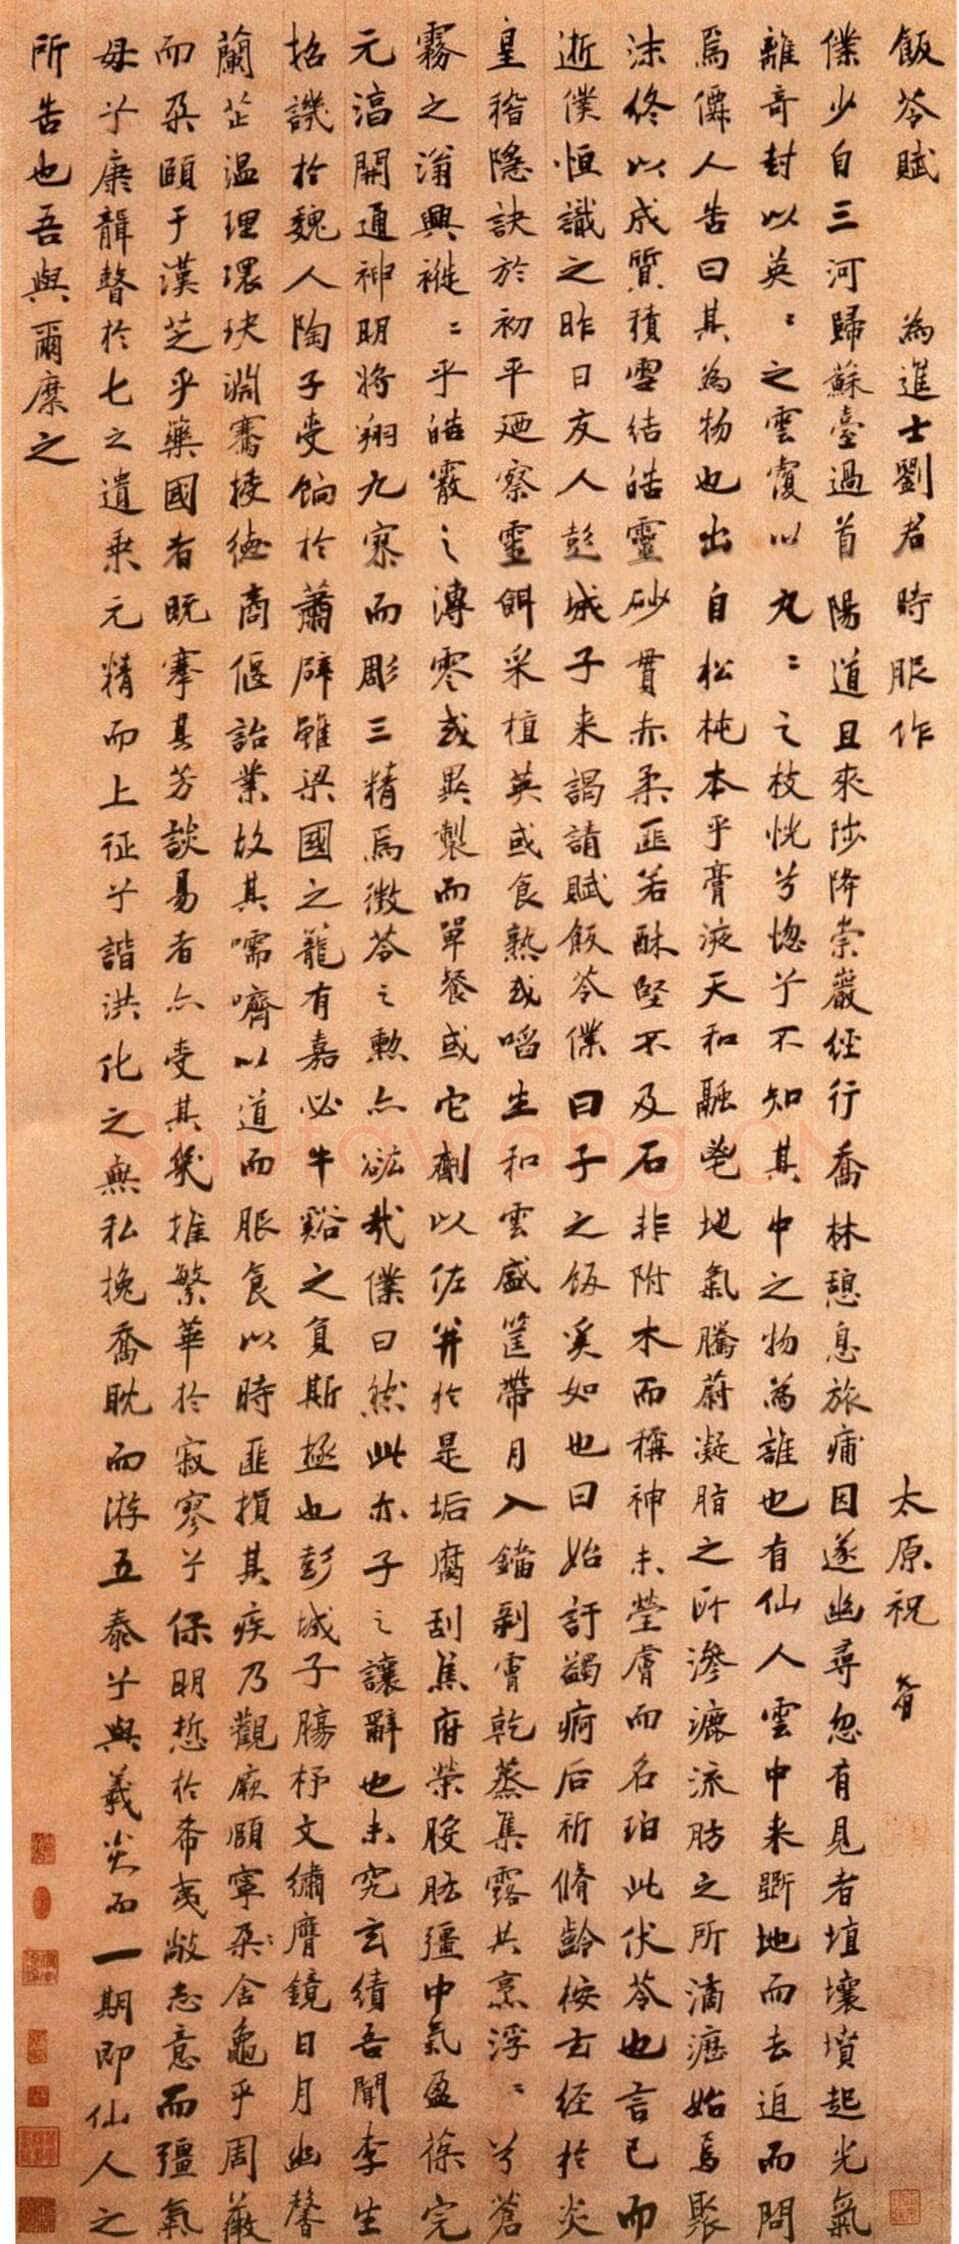 飯苓賦 為進士劉君時服作 太原祝 脊
僕少自三河歸蘇臺過首陽道且來陟降崇巖經行喬林憩息旅痡因遂幽尋忽有見者埴壤墳起光氣
離奇封以英〻之雲覆以丸〻之枝恍兮惚兮不知其中之物為誰也有仙人雲中来斲地而去迫而問
焉僊人告曰其為物也出自松杶本乎膏液天和融毣地氣騰蔚凝脂之所滲漉流肪之所滴瀝始焉聚
沫終以成質積雪結皓靈砂貫赤柔匪若酥堅不及石非附木而稱神未瑩膚而名珀此伏苓也言已而
逝僕恒識之昨日友人彭城子来謁請賦飯苓僕曰子之飯奚如也曰始訏蠲痾后祈脩齡桉玄經於炎
皇稽隱訣於初平廼察靈餌采植英或食熟或啗生和雲盛筐帶月入鐺剥霄乾蒸集露共烹浮〻兮蒼
霧之滃興褷〻乎皓霰之漙零或異製而單餐或它劑以佐并於是垢腐刮焦府榮胺胠彊中氣盈葆完
元滈開通神明將翔九寮而彫三精焉微苓之勲亦紘哉僕曰然此亦子之讓辭也未究玄績吾聞李生
招譏於魏人陶子受餉於蕭辟雖梁國之龍有嘉必牛谿之負斯極也彭城子腸杼文繡膺鏡日月幽馨
蘭茝温理環玦淵騫接德商偃詒業故其嚅嚌以道而服食以時匪損其疾乃觀厥頤寧朵〻舍龜乎周薇
而朶頤于漢芝乎藥國者既搴其芳談易者亦受其幾推繁華於寂寥兮保明悊於希夷敞志意而彊氣
母兮康韻聱於七之遺乘元精而上征兮諧洪化之無私挽喬耽而游五泰兮與羲炎而一期即仙人之
所告也吾與爾縻之